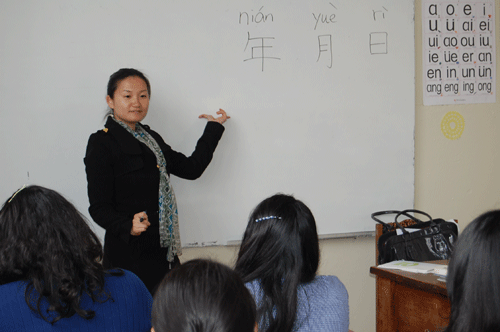 nián yuè rì
年 月 日
a o e i
u ü ai ei
ui ao ou iu
ie üe er an
en in un ün
ang eng ing ong